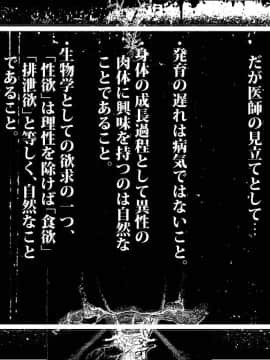 だが医師の見立てとして…
・発育の遅れは病気ではないこと。
・身体の成長過程として異性の
肉体に興味を持つのは自然な
ことであること。
・生物学としての欲求の一つ、
「性欲」は理性を除けば「食欲」
「排泄欲」と等しく、自然なこと
であること。